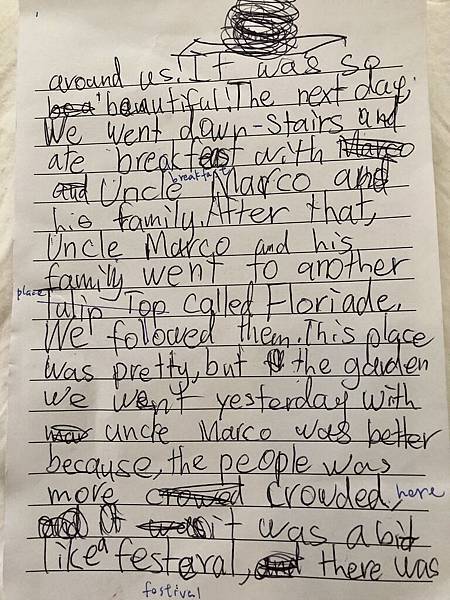 around us! It was so
beautiful! The next day,
We went down-stairs and
ate breakfast with
breakfast
Uncle Marco and
his family. After that,
Uncle Marco and his
family went to another
place
Tulip Top called Floriade.
We followed them. This place
was pretty, but the garden
we went yesterday with
uncle Marco was better
because, the people was
more crowded, here
it was a bit
like a festeral, there was
festival